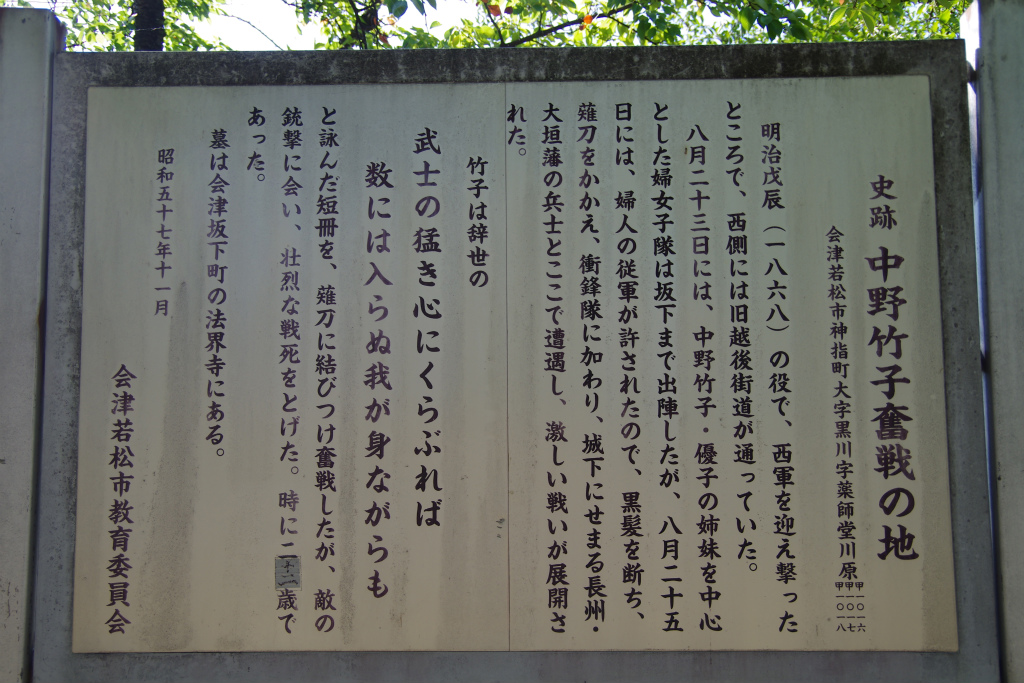 史跡 中野竹子奮戦の地
会津若松市神指町大字黒川字薬師堂川原甲一〇一六
甲一〇一七
甲一〇一八
明治戊辰（一八六八）の役で、西軍を迎え撃った
ところで、西側には旧越後街道が通っていた。
八月二十三日には、中野竹子・優子の姉妹を中心
とした婦女子隊は坂下まで出陣したが、八月二十五
日には、婦人の従軍が許されたので、黒髪を断ち、
薙刀をかかえ、衝鋒隊に加わり、城下にせまる長州・
大垣藩の兵士とここで遭遇し、激しい戦いが展開さ
れた。
竹子は辞世の
武士の猛き心にくらぶれば
数には入らぬ我が身ながらも
と詠んだ短冊を、薙刀に結びつけ奮戦したが、敵の
銃撃に会い、壮烈な戦死をとげた。時に二十二歳で
あった。
墓は会津坂下町の法界寺にある。
昭和五十七年十一月
会津若松市教育委員会